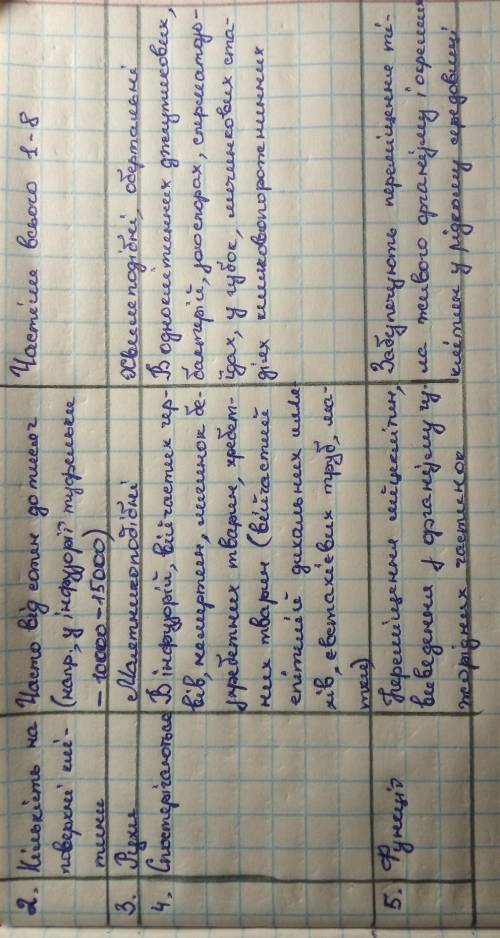 2. Кількість на
поверхні клі-
тини
Часто від сотин до тисяч
(напр., у інфузорії туфельки
– 10000–15000)
Частіше всього 1-8
3. Рухи
Маятникоподібні
Хвилеподібні, обертальні
4. Спостерігаються
В інфузорій, війчастих чер-
вів, немертин, личинок бе-
зхребетних тварин, хребет-
них тварин (війчастий
епітелій дихальних шля-
хів, євстахієвих труб, ма-
тки)
В одноклітинних джгутикових,
бактерій, зооспорах, сперматозо-
їдах, у губок, личинкових ста-
діях кишковопорожнинних
5. Функції
Переміщення яйцеклітин,
виведення з організму чу-
жорідних частинок
Забупечують переміщення ті-
ла живого організму, і окремих
клітин у рідкому середовищі